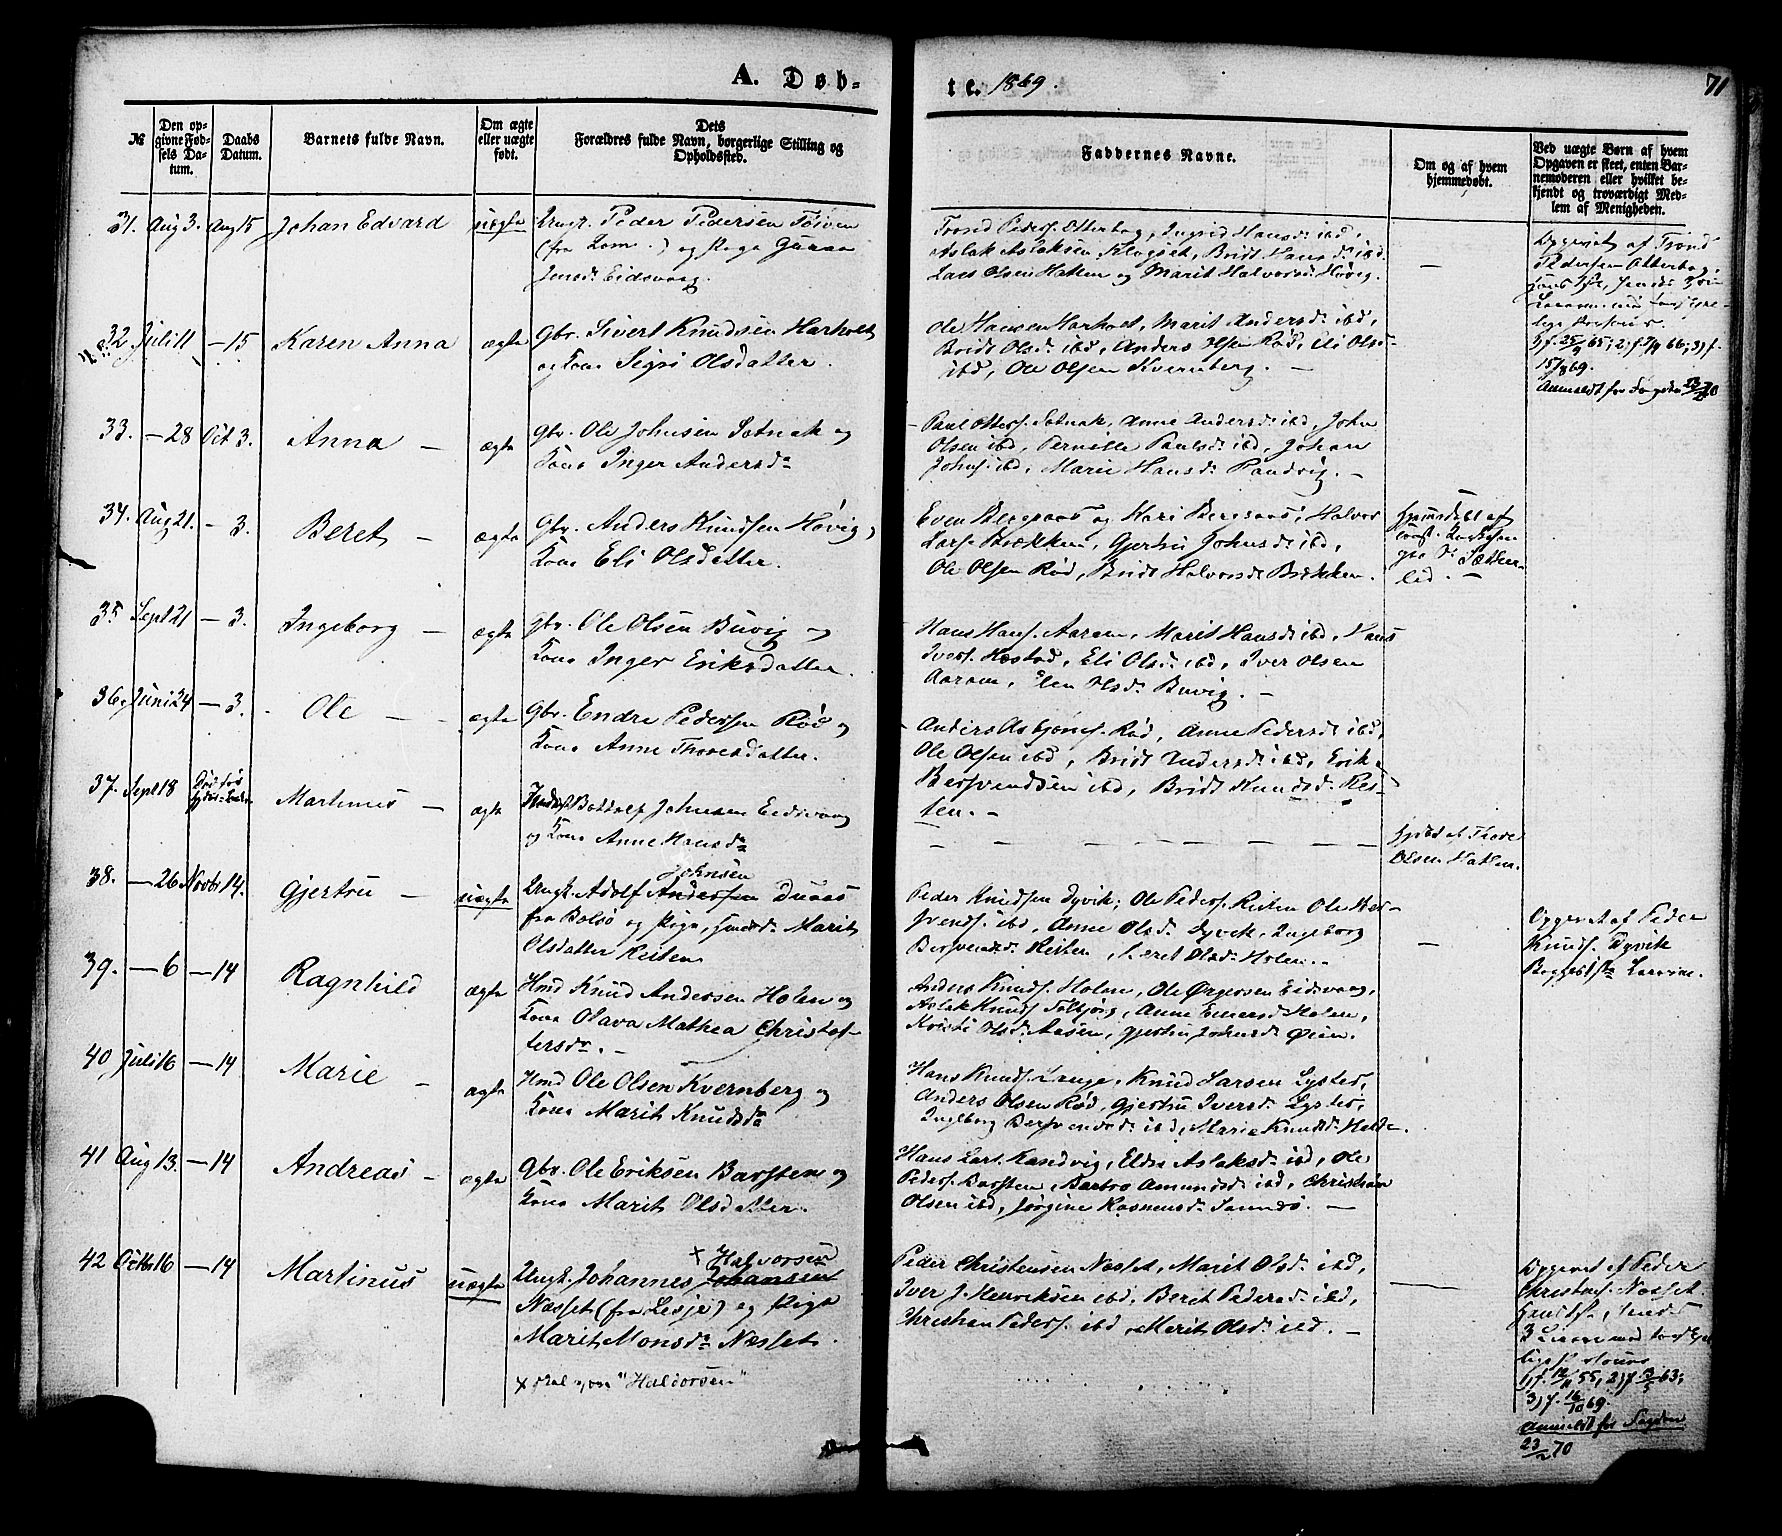 A. Døb-
te. 1869.
71
№
Den op-
givne Fød-
sels Da-
tum.
Daabs
Datum.
Barnets fulde Navn.
Om ægte
eller uægte
født.
Dets
Forældres fulde Navn, borgerlige Stilling og
Opholdssted.
Faddernes Navne.
Om og af hvem
hjemmedøbt.
Ved uægte Børn af hvem
Opgaven er skeet, enten Bar-
nemoderen eller hvilket be-
kjendt og troværdigt Med-
lem af Menigheden.
31. Aug 3. Aug 15 Johan Edvard uægte Ungk. Peder Pedersen
(fra Lom.) og Pige Guran
Jonsdr Eidsvaag.
Trond Peders. Otterbog, Ingrid Hansdr ibd,
Aslak Aslaksen Klogset, Bridt Hansdr ibd.
Lars Olsen Hatlen og Marit Halvorsdr Høvig.
—
Opgivet af Trond
Pedersen Otterbog,
32 Juli 11 — 15 Karen Anna ægte Gbr. Sivert Knudsen Harholt
og Kone Sigri Olsdatter.
Ole Hansen Harholt, Marit Andersdr ibd,
Bridt Olsdr ibd, Anders Olsen Rød, Eli Olsdr
ibd, Ole Olsen Kvernberg. —
1) f. 25/3 65; 2) f. 7/9 66; 3) f.
15/8 69.
Anmeldt for Fogden 23/2 70
33. — 28 Oct 3. Anna — ægte Gbr. Ole Johnsen Sotnak og
Kone Inger Andersdr
Paul Otters. Sotnak, Anne Andersdr ibd, John
Olsen ibd, Pernille Paulsdr ibd, Johan
Johns. ibd, Marie Hansdr Randvig. —
34. Aug 21. — 3. Beret — ægte Gbr. Anders Knudsen Høvig og
Kone Eli Olsdatter.
Even Bergsaas og Kari Bergsaas, Halvor
Larss. Brækken, Gjertru Johnsdr ibd,
Ole Olsen Rød, Bridt Halvorsdr Brækken.
Hjemmedøbt af
35 Sept 21 — 3. Ingeborg — ægte Gbr. Ole Olsen Buvig og
Kone Inger Eriksdatter.
Hans Hans. Aaram, Marit Hansdr ibd, Hans
Ivers. Næstad, Eli Olsdr ibd, Iver Olsen
Aaram, Elen Olsdr Buvig. —
36. Juni 24 — 3. Ole — ægte Gbr. Endre Pedersen Rød og
Kone Anne Thoresdatter.
Anders Asbjørns. Rød, Anne Pedersdr ibd,
Ole Olsen ibd, Bridt Andersdr ibd, Erik
Bersvendsen ibd, Bridt Knudsdr Reis-
ten. —
37. Sept 18 Død før Martinus — ægte Bottolf Johnsen Eidsvaag
og Kone Anne Hansdr
— — — — — — —
Hjdøbt af Thore
Olsen Hatlen.
38. — 26 Novbr 14. Gjertru — uægte Ungk. Adolf Andersen Johnsen
fra Bolsø og Pige, Marit
Olsdatter Reisten
Peder Knudsen Dyvik; Ole Peders. Reisten Ole Ber-
svends. ibd, Anne Olsdr Dyvik, Ingeborg
Bersvendsdr Reisten, Beret Olsdr Holen. —
—
Opgivet af Peder
Knuds. Dyvik
39. — 6 — 14 Ragnhild ægte Hmd Knud Andersen Holen og
Kone Olava Mathea Christof-
fersdr. —
Anders Knuds. Holen, Ole Ørgersen Eidsvaag,
Aslak Knuds. Toltjørg, Anne Einersdr Holen,
Kristi Olsdr Aasen, Gjertru Johnsdr Øien.
40 Juli 16 — 14 Marie — ægte Hmd Ole Olsen Kvernberg og
Kone Marit Knudsdr
Hans Knuds. Lange, Knud Larsen Lysted,
Anders Olsen Rød, Gjertru Iversdr Lysted,
Ingeborg Bersvendsdr ibd, Marie Knudsdr
41 Aug 13. — 14 Andreas — ægte Gbr. Ole Eriksen Barsten og
Kone Marit Olsdatter.
Hans Lars. Randvig, Eldri Aslaksdr ibd, Ole
Peders. Barsten, Barbro Amundsdr ibd, Christian
Olsen ibd, Jørgine Rasmusdr Sandø. —
42 Octbr 16 — 14 Martinus uægte Ungk. Johannes Johansen × Halvorsen
Næsset (fra Lesje) og Pige
Marit Monsdr Næsset.
× skal være "Haldorsen"
Peder Christensen Næsset, Marit Olsdr ibd,
Iver J. Henriksen ibd, Berit Pedersdr ibd,
Christian Peders. ibd, Merit Olsdr ibd. —
—
Opgivet af Peder
Christens. Næsset.
1) f. 12/11 55, 2) f. 3/5 63;
3) f. 16/10 69.
Anmeldt for Fogden
23/2 70